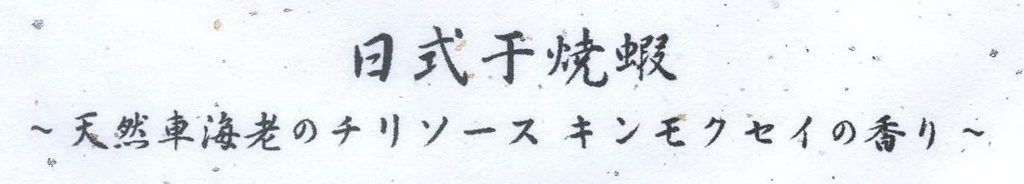 日式干焼蝦
～天然車海老のチリソース キンモクセイの香り～